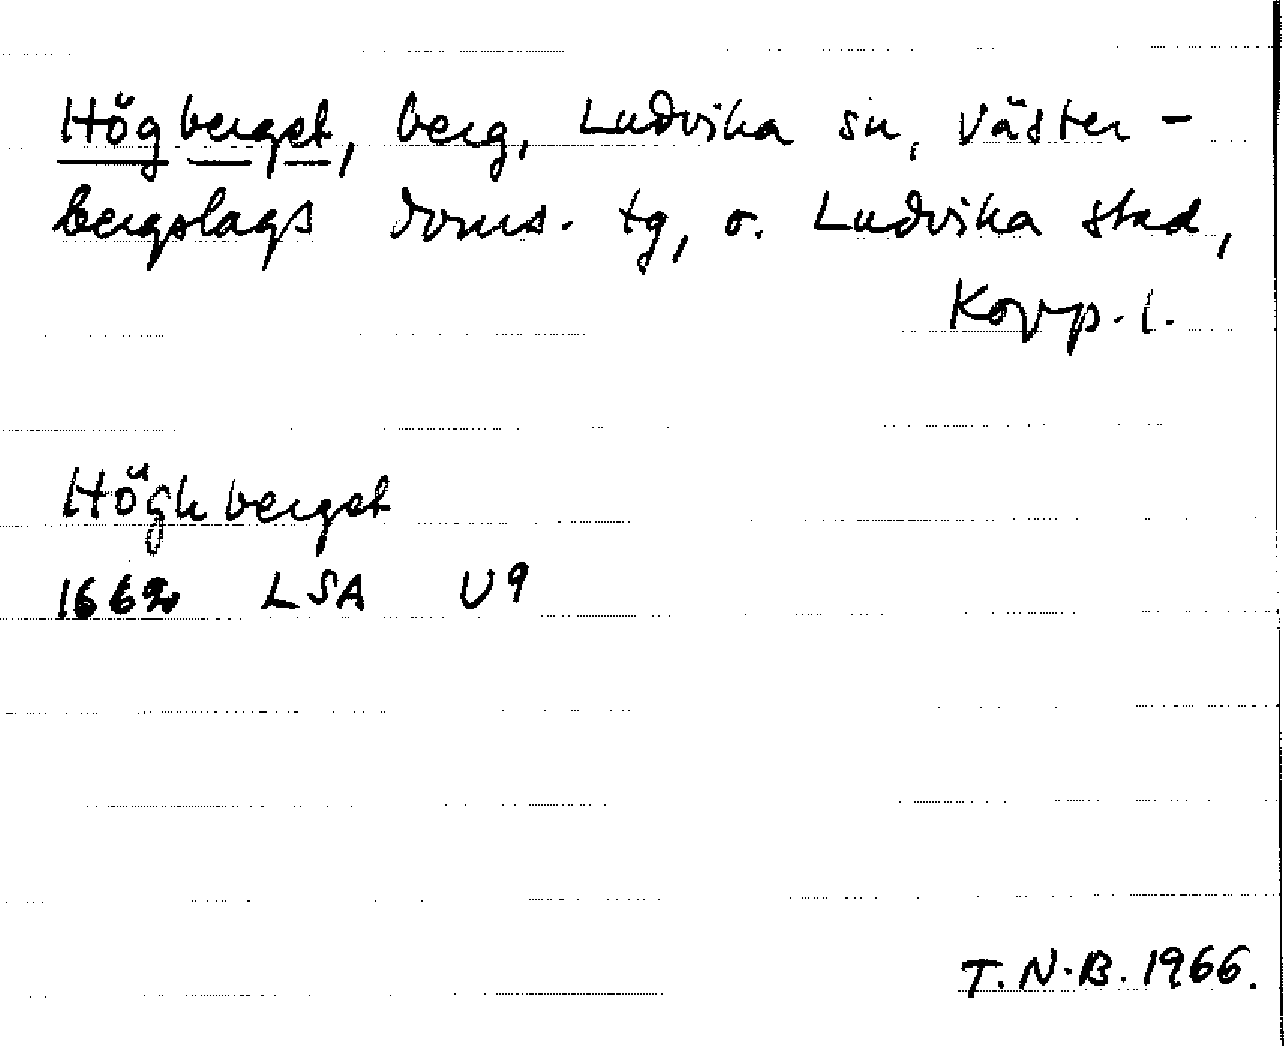 Högberget, berg, Ludvika sn, Väster-
bergslags doms. tg, o. Ludvika stad,
Kopp. l.
Högh berget
1662 LSA U9
T.N.B. 1966.